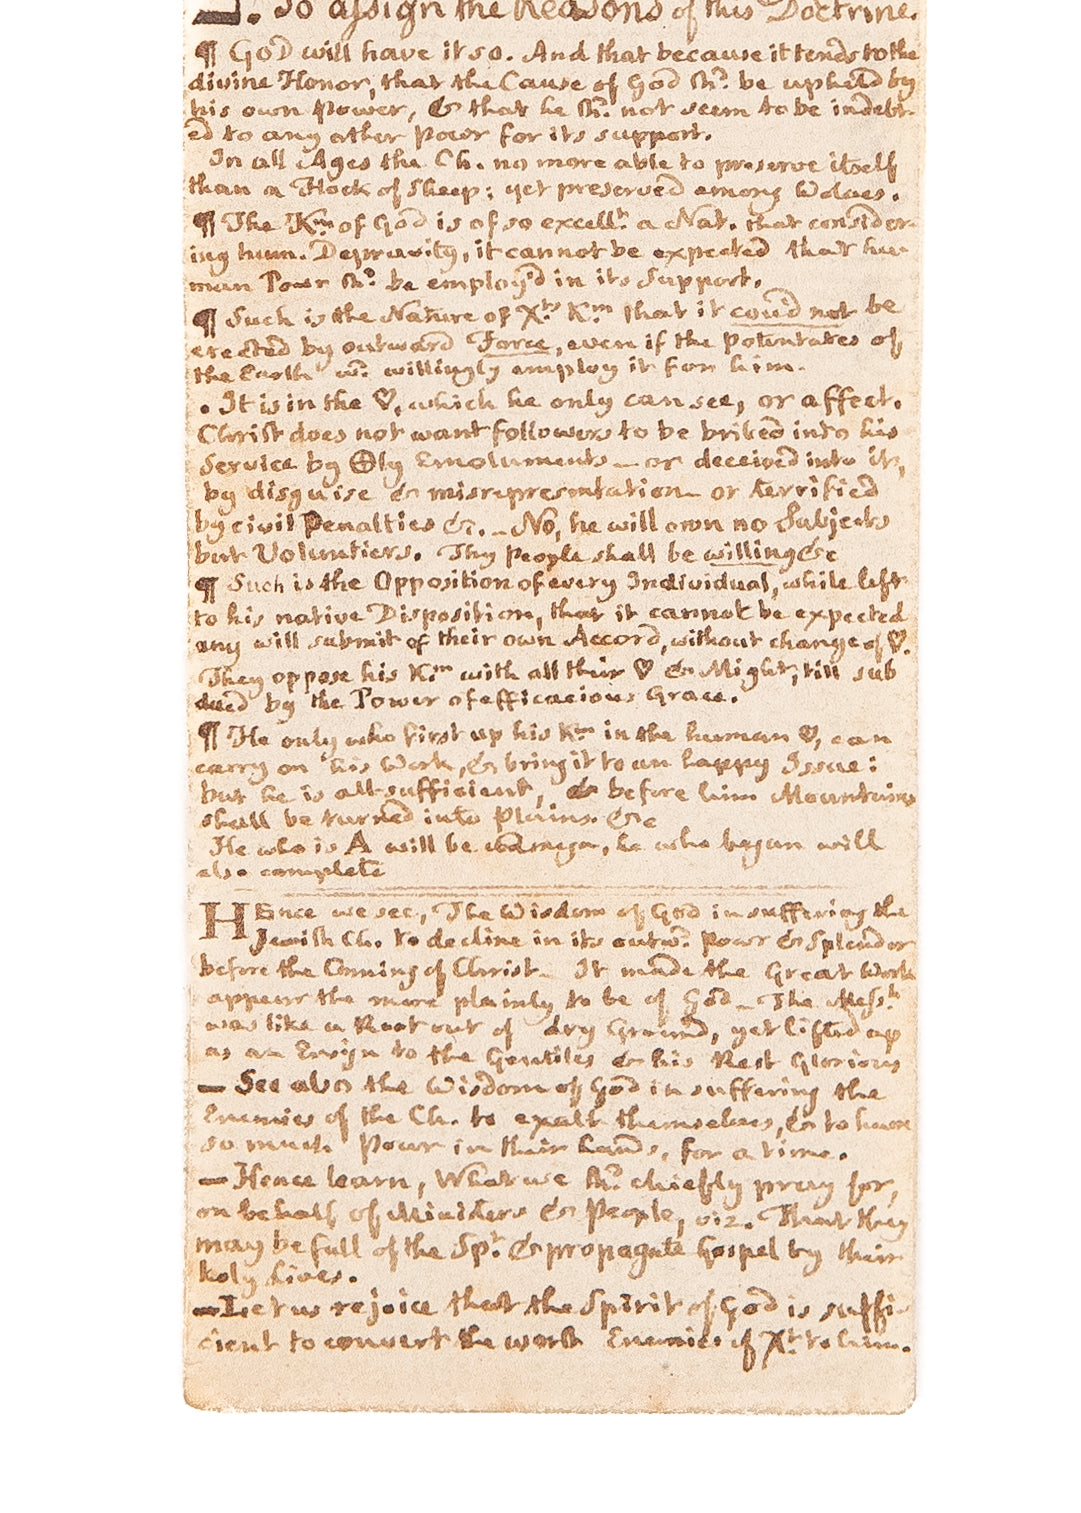 2. To assign the Reasons of this Doctrine.
¶ God will have it so. And that because it tends to the
divine Honor, that the Cause of God shd. be upheld by
his own Power, & that he shd. not seem to be indebt-
ed to any other Powr for its support.
In all Ages the Ch. no more able to preserve itself
than a Flock of Sheep; yet preserved among Wolves.
¶ The Kgm of God is of so excellt. a Nat. that consider-
ing hum. Depravity, it cannot be expected that hu-
man Powr shd. be employ'd in its Support.
¶ Such is the Nature of Xts Kgm that it cou'd not be
erected by outward Force, even if the Potentates of
the Earth wd. willingly employ it for him.
. It is in the ♡, which he only can see, or affect.
Christ does not want followers to be bribed into his
Service by ⊕ly Emoluments — or deceived into it,
by disguise & misrepresentation — or terrified
by civil Penalties &c. — No, he will own no Subjects
but Voluntiers. Thy People shall be willing &c
¶ Such is the Opposition of every Individual, while left
to his native Disposition, that it cannot be expected
any will submit of their own Accord, without change of ♡.
They oppose his Kgm with all their ♡ & Might, till sub
dued by the Power of efficacious Grace.
¶ He only who first up his Kgm in the human ♡, can
carry on this Work, & bring it to an happy Issue:
but he is all-sufficient, & before him Mountains
shall be turned into Plains. &c
He who is A will be omega, he who began will
also complete
Hence we see, The Wisdom of God in suffering the
Jewish Ch. to decline in its outwd. Powr & Splendor
before the Coming of Christ — It made the Great Work
appear the more plainly to be of God — The Messh
was like a Root out of dry Ground, yet lifted up
as an Ensign to the Gentiles & his Rest Glorious
— See also the Wisdom of God in suffering the
Enemies of the Ch. to exalt themselves, & to have
so much Powr in their hands, for a time.
— Hence learn, What we shd. chiefly pray for,
on behalf of Ministers & People, viz. That they
may be full of the Spt. & propagate Gospel by their
holy Lives.
— Let us rejoice that the Spirit of God is suffi-
cient to convert the worst Enemies of Xt. to him.